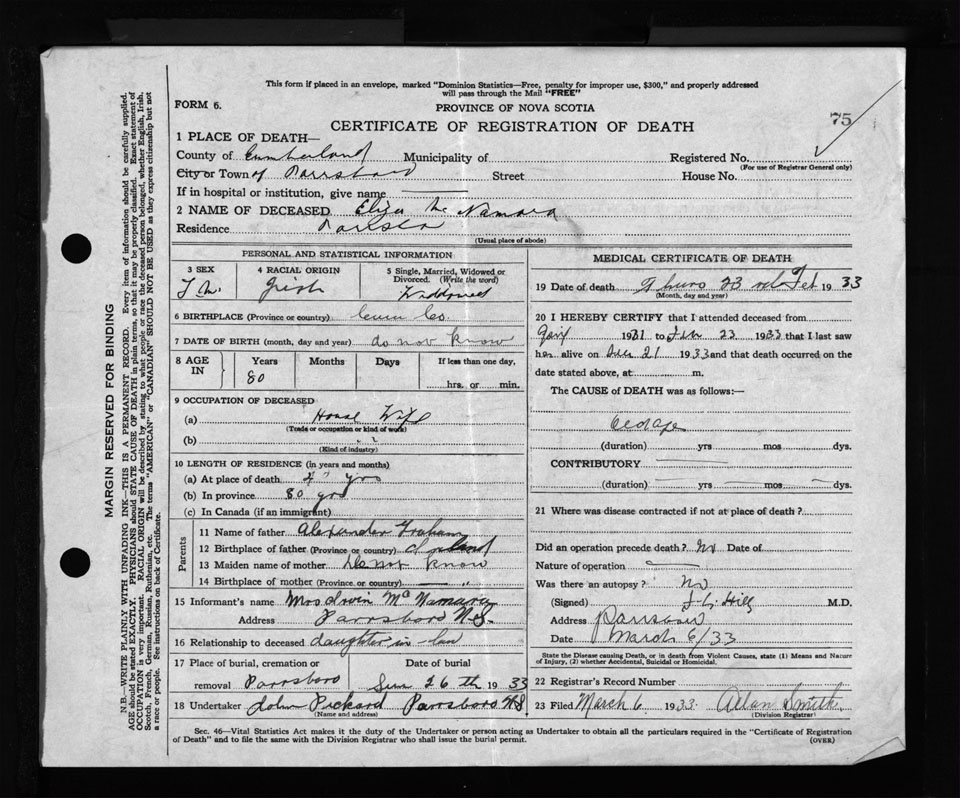 This form if placed in an envelope, marked "Dominion Statistics—Free, penalty for improper use, $300," and properly addressed
will pass through the Mail "FREE"
FORM 6.
PROVINCE OF NOVA SCOTIA
75
CERTIFICATE OF REGISTRATION OF DEATH
1 PLACE OF DEATH—
County of Cumberland Municipality of Registered No.
(For use of Registrar General only)
City or Town of Parrsboro Street House No.
If in hospital or institution, give name
2 NAME OF DECEASED Eliza Mc Namara
Residence
(Usual place of abode)
PERSONAL AND STATISTICAL INFORMATION
3 SEX 4 RACIAL ORIGIN 5 Single, Married, Widowed or Divorced. (Write the word)
Irish Widdowed
6 BIRTHPLACE (Province or country) Co.
7 DATE OF BIRTH (month, day and year) do not know
8 AGE IN Years Months Days If less than one day,
80 hrs. or min.
9 OCCUPATION OF DECEASED
(a) House Wife
(Trade or occupation or kind of work)
(b)
(Kind of industry)
10 LENGTH OF RESIDENCE (in years and months)
(a) At place of death yrs
(b) In province 80 yrs
(c) In Canada (if an immigrant)
Parents
11 Name of father Alexander Graham
12 Birthplace of father (Province or country)
13 Maiden name of mother Do not know
14 Birthplace of mother (Province or country) — "
15 Informant's name Mrs Mc Namara
Address Parrsboro N.S.
16 Relationship to deceased daughter in law
17 Place of burial, cremation or Date of burial
removal Parrsboro 26th 1933
18 Undertaker John Pickard Parrsboro NS
(Name and address)
MEDICAL CERTIFICATE OF DEATH
19 Date of death Thurs 23 Feb 1933
(Month, day and year)
20 I HEREBY CERTIFY that I attended deceased from
1931 to Feb 23 1933 that I last saw
her alive on 21 1933 and that death occurred on the
date stated above, at m.
The CAUSE of DEATH was as follows:—
Old age
(duration) yrs mos dys.
CONTRIBUTORY
(duration) yrs mos dys.
21 Where was disease contracted if not at place of death?
Did an operation precede death? No Date of
Nature of operation
Was there an autopsy? No
(Signed) Hill M.D.
Address Parrsboro
Date March 6/33
State the Disease causing Death, or in death from Violent Causes, state (1) Means and Nature
of Injury, (2) whether Accidental, Suicidal or Homicidal.
22 Registrar's Record Number
23 Filed March 6 1933. Allan Smith
(Division Registrar)
Sec. 46—Vital Statistics Act makes it the duty of the Undertaker or person acting as Undertaker to obtain all the particulars required in the "Certificate of Registration
of Death" and to file the same with the Division Registrar who shall issue the burial permit.
(OVER)
MARGIN RESERVED FOR BINDING
N.B.—WRITE PLAINLY WITH UNFADING INK—THIS IS A PERMANENT RECORD. Every item of information should be carefully supplied.
AGE should be stated EXACTLY. PHYSICIANS should STATE CAUSE OF DEATH in plain terms, so that it may be properly classified. Exact statement of
OCCUPATION is very important. RACIAL ORIGIN will be described by stating to what people or race the deceased person belonged, whether English, Irish,
Scotch, French, German, Russian, Ruthenian, etc. The terms "AMERICAN" or "CANADIAN" SHOULD NOT BE USED as they express citizenship but not
a race or people. See instructions on back of Certificate.